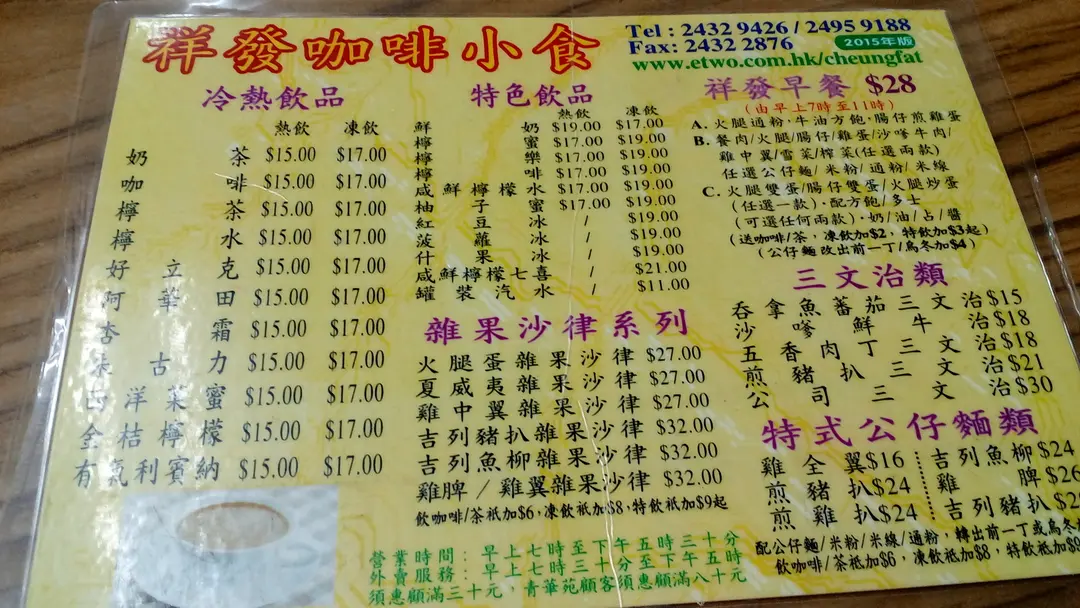 祥發咖啡小食
Tel : 2432 9426 / 2495 9188
Fax: 2432 2876
2015年版
www.etwo.com.hk/cheungfat
冷熱飲品
熱飲 凍飲
奶茶 $15.00 $17.00
咖啡 $15.00 $17.00
檸茶 $15.00 $17.00
檸水 $15.00 $17.00
好立克 $15.00 $17.00
阿華田 $15.00 $17.00
杏霜 $15.00 $17.00
朱古力 $15.00 $17.00
西洋菜蜜 $15.00 $17.00
金桔檸檬 $15.00 $17.00
有氣利賓納 $15.00 $17.00
特色飲品
熱飲 凍飲
鮮奶 $19.00 $17.00
檸蜜 $17.00 $19.00
檸樂 $17.00 $19.00
檸啡 $17.00 $19.00
咸鮮檸檬水 $17.00 $19.00
柚子蜜 $17.00 $19.00
紅豆冰 / $19.00
菠蘿冰 / $19.00
什果冰 / $19.00
咸鮮檸檬七喜 / $21.00
罐裝汽水 / $11.00
雜果沙律系列
火腿蛋雜果沙律 $27.00
夏威夷雜果沙律 $27.00
雞中翼雜果沙律 $27.00
吉列豬扒雜果沙律 $32.00
吉列魚柳雜果沙律 $32.00
雞脾/雞翼雜果沙律 $32.00
飲咖啡/茶祗加$6,凍飲祗加$8,特飲祗加$9起
營業時間: 早上七時至下午五時三十分
外賣服務: 早上七時三十分至下午五時
須惠顧滿三十元,青華苑顧客須惠顧滿八十元
祥發早餐 $28
(由早上7時至11時)
A. 火腿通粉,牛油方飽,腸仔煎雞蛋
B. 餐肉/火腿/腸仔/雞蛋/沙嗲牛肉/
雞中翼/雪菜/榨菜(任選兩款)
任選公仔麵/米粉/通粉/米線
C. 火腿雙蛋/腸仔雙蛋/火腿炒蛋
(任選一款)·配方飽/多士
(可選任何兩款)·奶/油/占/醬
(送咖啡/茶,凍飲加$2,特飲加$3起)
(公仔麵改出前一丁/烏冬加$4)
三文治類
吞拿魚蕃茄三文治 $15
沙嗲鮮牛治 $18
五香肉丁三文治 $18
煎豬扒三文治 $21
公司三文治 $30
特式公仔麵類
雞全翼 $16
煎豬扒 $24
煎雞扒 $24
吉列魚柳 $24
雞脾 $26
吉列豬扒
配公仔麵/米粉/米線/通粉,轉出前一丁或烏冬
飲咖啡/茶祗加$6,凍飲祗加$8,特飲祗